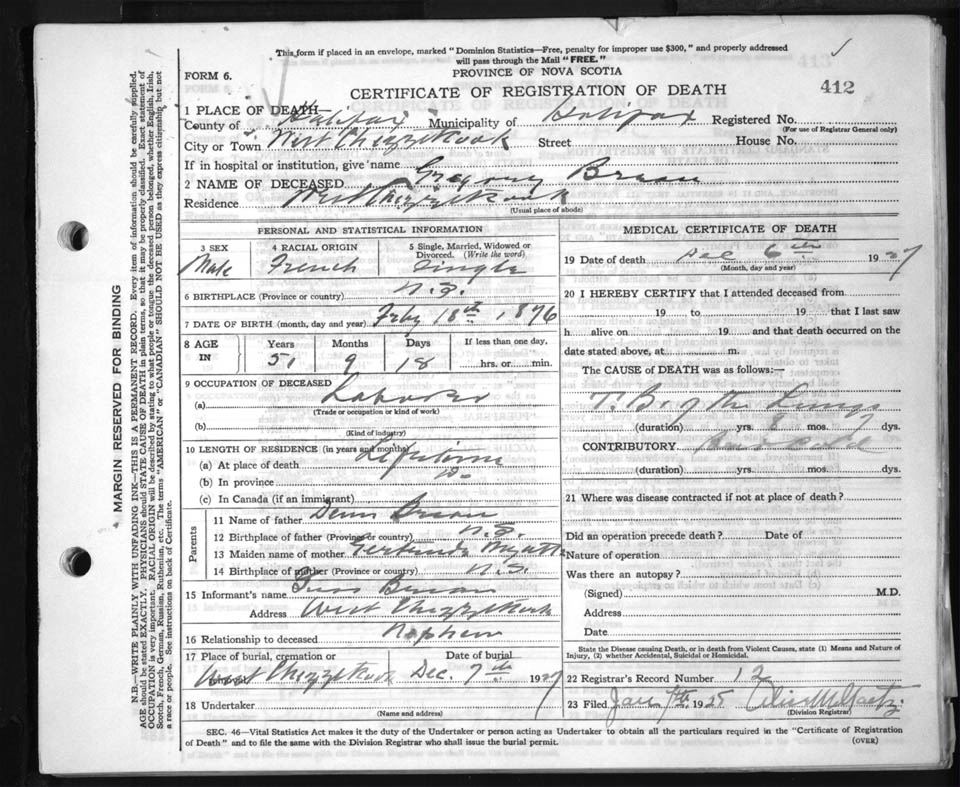 This form if placed in an envelope, marked "Dominion Statistics—Free, penalty for improper use $300," and properly addressed
will pass through the Mail "FREE."
FORM 6. PROVINCE OF NOVA SCOTIA
CERTIFICATE OF REGISTRATION OF DEATH 412
1 PLACE OF DEATH
County of Halifax Municipality of Halifax Registered No.
(For use of Registrar General only)
City or Town West Chezzetcook Street House No.
If in hospital or institution, give name
2 NAME OF DECEASED Gregory
Residence West Chezzetcook
(Usual place of abode)
PERSONAL AND STATISTICAL INFORMATION
3 SEX 4 RACIAL ORIGIN 5 Single, Married, Widowed or Divorced. (Write the word)
Male French Single
6 BIRTHPLACE (Province or country) N.S.
7 DATE OF BIRTH (month, day and year) Feby 18th 1876
8 AGE IN Years Months Days If less than one day,
51 9 18 hrs. or min.
9 OCCUPATION OF DECEASED
(a) Laborer
(Trade or occupation or kind of work)
(b)
(Kind of industry)
10 LENGTH OF RESIDENCE (in years and months)
(a) At place of death Lifetime
(b) In province do
(c) In Canada (if an immigrant)
Parents
11 Name of father
12 Birthplace of father (Province or country) N.S.
13 Maiden name of mother Gertrude
14 Birthplace of mother (Province or country) N.S.
15 Informant's name
Address West Chezzetcook
16 Relationship to deceased Nephew
17 Place of burial, cremation or Date of burial
West Chezzetcook Dec. 7th 1927
18 Undertaker
(Name and address)
MEDICAL CERTIFICATE OF DEATH
19 Date of death Dec 6th 1927
(Month, day and year)
20 I HEREBY CERTIFY that I attended deceased from
19 to 19 that I last saw
h alive on 19 and that death occurred on the
date stated above, at m.
The CAUSE of DEATH was as follows:—
T.B. of the Lungs
(duration) yrs. 6 mos. dys.
CONTRIBUTORY
(duration) yrs. mos. dys.
21 Where was disease contracted if not at place of death?
Did an operation precede death? Date of
Nature of operation
Was there an autopsy?
(Signed) M.D.
Address
Date
State the Disease causing Death, or in death from Violent Causes, state (1) Means and Nature of Injury, (2) whether Accidental, Suicidal or Homicidal.
22 Registrar's Record Number 12
23 Filed Jan 7th 1928
(Division Registrar)
SEC. 46—Vital Statistics Act makes it the duty of the Undertaker or person acting as Undertaker to obtain all the particulars required in the "Certificate of Registration
of Death" and to file the same with the Division Registrar who shall issue the burial permit. (OVER)
MARGIN RESERVED FOR BINDING
N.B.—WRITE PLAINLY WITH UNFADING INK—THIS IS A PERMANENT RECORD. Every item of information should be carefully supplied.
AGE should be stated EXACTLY. PHYSICIANS should STATE CAUSE OF DEATH in plain terms, so that it may be properly classified. Exact statement of
OCCUPATION is very important. RACIAL ORIGIN will be described by stating to what people or tongue the deceased person belonged, whether English, Irish,
Scotch, French, German, Russian, Ruthenian, etc. The terms "AMERICAN" or "CANADIAN" SHOULD NOT BE USED as they express citizenship but not
a race or people. See instructions on back of Certificate.